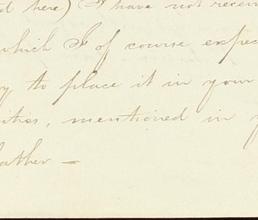 d here) I have not recei
which I of course expec
y to place it in your
ities, mentioned in y
father —